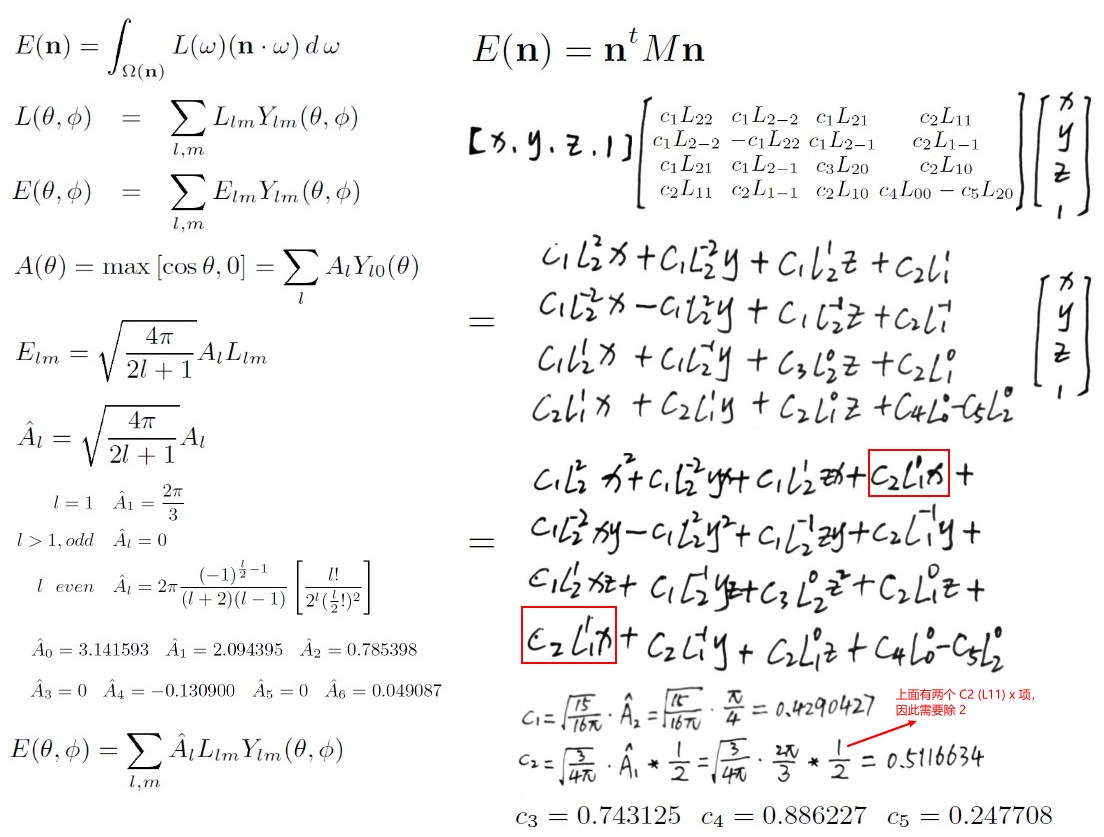 E(n) = ∫_{Ω(n)} L(ω)(n · ω) d ω
L(θ, ϕ) = ∑_{l,m} L_{lm}Y_{lm}(θ, ϕ)
E(θ, ϕ) = ∑_{l,m} E_{lm}Y_{lm}(θ, ϕ)
A(θ) = max [cos θ, 0] = ∑_l A_l Y_{l0}(θ)
E_{lm} = √(4π/(2l + 1)) A_l L_{lm}
Â_l = √(4π/(2l + 1)) A_l
l = 1 Â_1 = 2π/3
l > 1, odd Â_l = 0
l even Â_l = 2π (-1)^{l/2 - 1}/((l + 2)(l - 1)) [l!/(2^l (l/2 !)^2)]
Â_0 = 3.141593 Â_1 = 2.094395 Â_2 = 0.785398
Â_3 = 0 Â_4 = −0.130900 Â_5 = 0 Â_6 = 0.049087
E(θ, ϕ) = ∑_{l,m} Â_l L_{lm} Y_{lm}(θ, ϕ)
E(n) = n^t M n
[x, y, z, 1] [ c_1L_{22} c_1L_{2−2} c_1L_{21} c_2L_{11} ] [ x
c_1L_{2−2} −c_1L_{22} c_1L_{2−1} c_2L_{1−1} y
c_1L_{21} c_1L_{2−1} c_3L_{20} c_2L_{10} z
c_2L_{11} c_2L_{1−1} c_2L_{10} c_4L_{00} − c_5L_{20} 1 ]
= C_1L_2^2x + C_1L_2^{-2}y + C_1L_2^1z + C_2L_1^1 [ x
C_1L_2^{-2}x − C_1L_2^2y + C_1L_2^{-1}z + C_2L_1^{-1} y
C_1L_2^1x + C_1L_2^{-1}y + C_3L_2^0z + C_2L_1^0 z
C_2L_1^1x + C_2L_1^{-1}y + C_2L_1^0z + C_4L_0^0 − C_5L_2^0 1 ]
= C_1L_2^2x^2 + C_1L_2^{-2}yx + C_1L_2^1zx + C_2L_1^1x +
C_1L_2^{-2}xy − C_1L_2^2y^2 + C_1L_2^{-1}zy + C_2L_1^{-1}y +
C_1L_2^1xz + C_1L_2^{-1}yz + C_3L_2^0z^2 + C_2L_1^0z +
C_2L_1^1x + C_2L_1^{-1}y + C_2L_1^0z + C_4L_0^0 − C_5L_2^0
C_1 = √(15/16π) · Â_2 = √(15/16π) · π/4 = 0.4290427
上面有两个 C2 (L11) x 项,
因此需要除 2
C_2 = √(3/4π) · Â_1 * 1/2 = √(3/4π) · 2π/3 * 1/2 = 0.5116634
c_3 = 0.743125 c_4 = 0.886227 c_5 = 0.247708